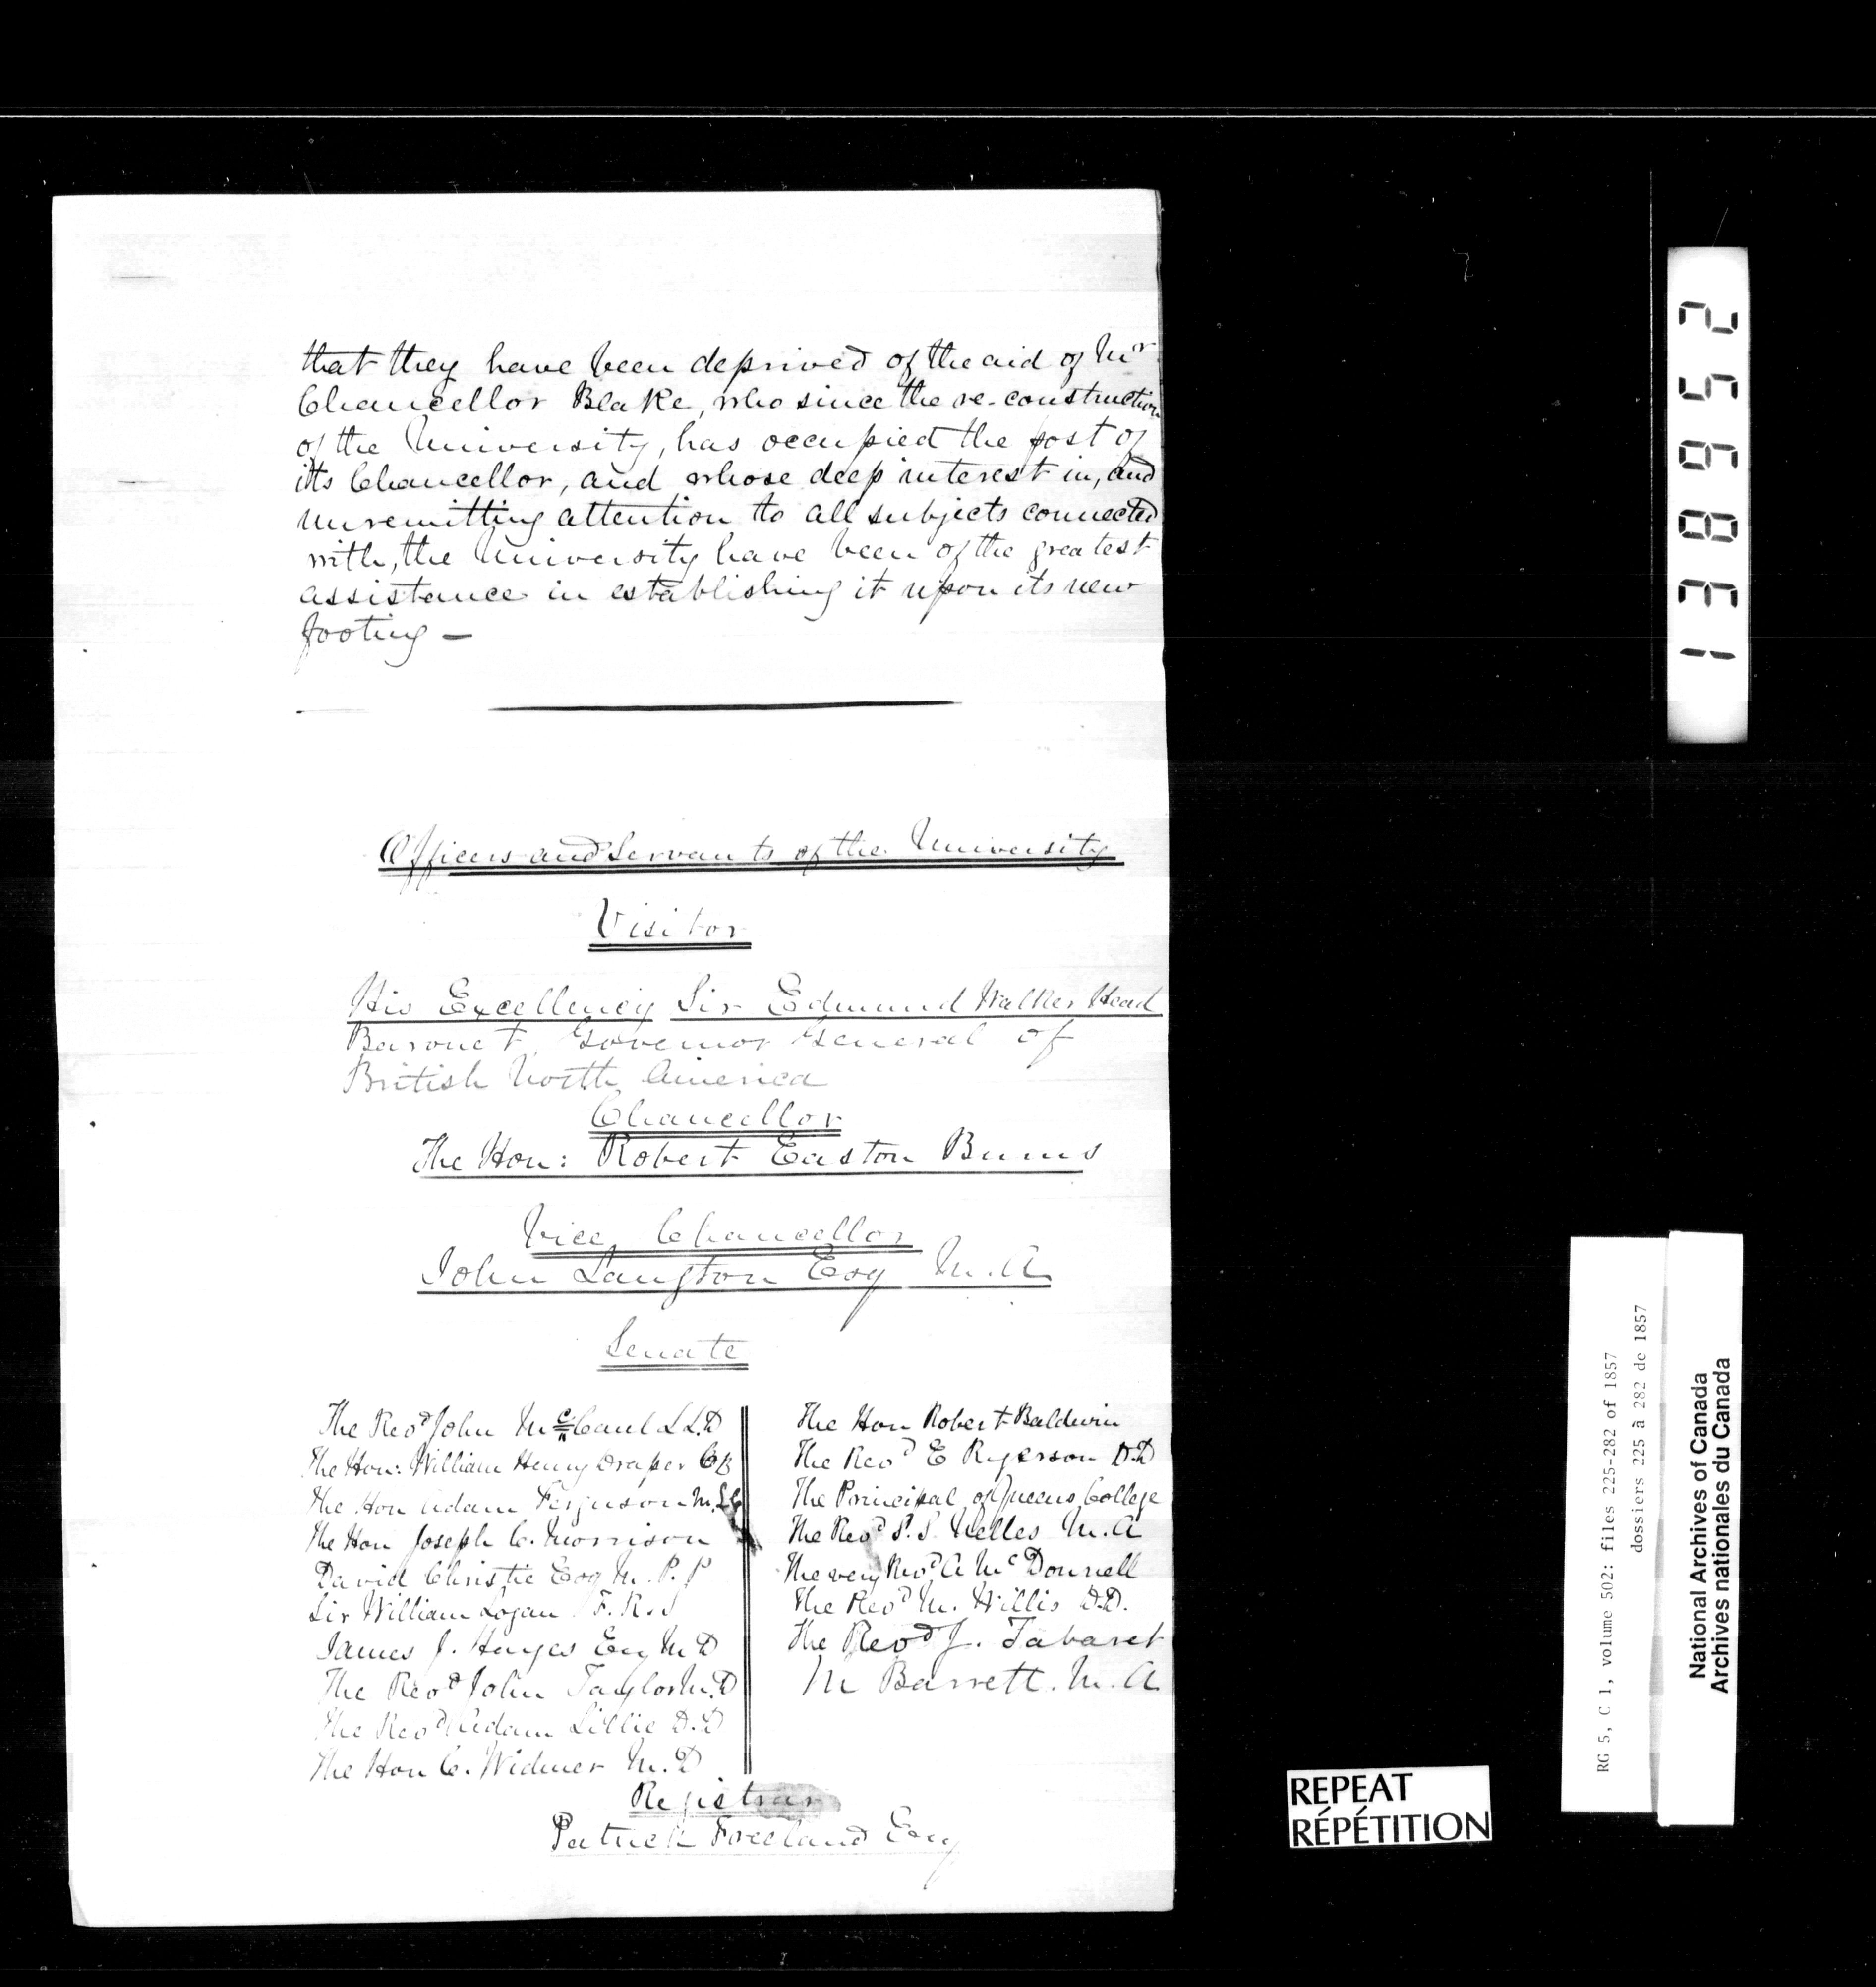 that they have been deprived of the aid of Mr
Chancellor Blake, who since the re-construction
of the University, has occupied the post of
its Chancellor, and whose deep interest in, and
unremitting attention to all subjects connected
with, the University have been of the greatest
assistance in establishing it upon its new
footing —
Officers and Servants of the University
Visitor
His Excellency Sir Edmund Walker Head
Baronet, Governor General of
British North America
Chancellor
The Hon: Robert Easton Burns
Vice Chancellor
John Langton Esq M.A
Senate
The Revd John McCaul LL.D
The Hon: William Henry Draper CB
The Hon Adam Ferguson M.LC
The Hon Joseph C. Morrison
David Christie Esq M.P.P
Sir William Logan F.R.S
James J. Hayes Esq M.D
The Revd John Taylor M.D
The Revd Adam Lillie D.D
The Hon C. Widmer M.D
The Hon Robert Baldwin
The Revd E Ryerson D.D
The Principal of Queens College
The Revd S.S. Nelles M.A
The very Revd A McDonnell
The Revd M. Willis D.D.
The Revd J. Tabaret
M Barrett. M.A
Registrar
Patrick Freeland Esq
138952
RG 5, C 1, volume 502: files 225-282 of 1857
dossiers 225 à 282 de 1857
National Archives of Canada
Archives nationales du Canada
REPEAT
RÉPÉTITION